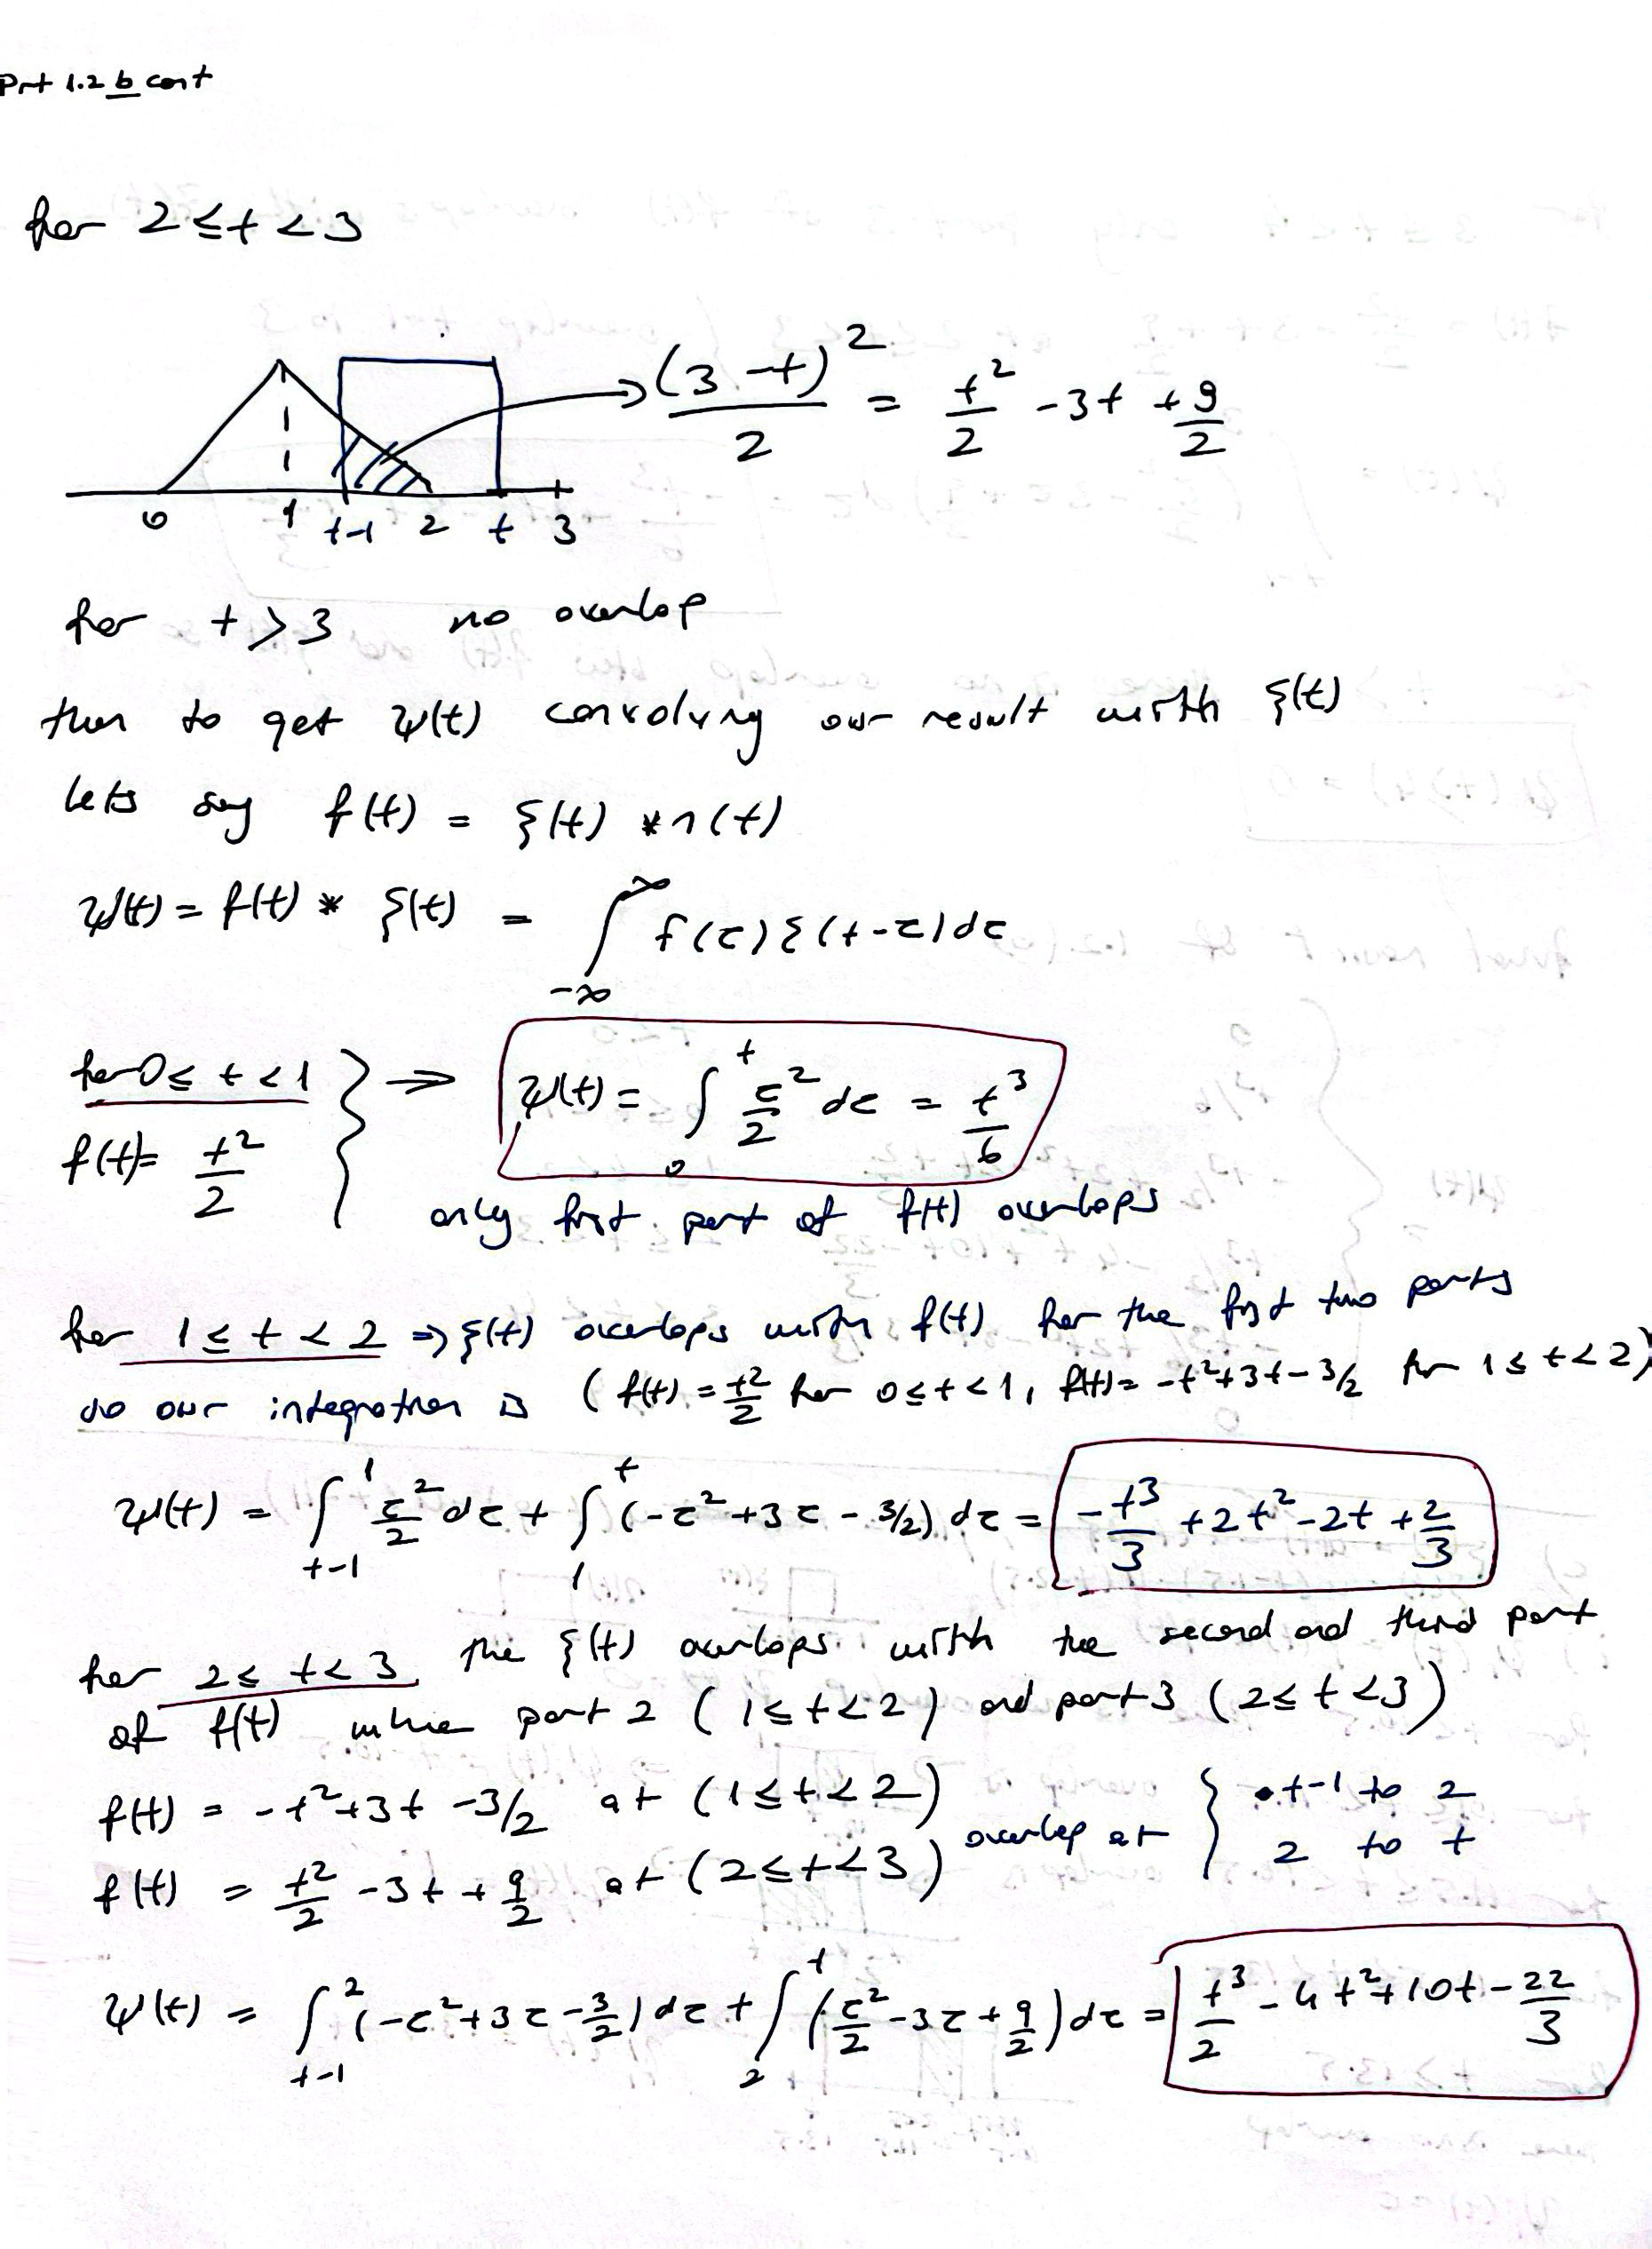 Prt 1.2 b cont
for 2 ≤ t < 3
(3-t)²/2 = t²/2 - 3t + 9/2
0 1 t-1 2 t 3
for t > 3 no overlap
then to get ψ(t) convolving our result with ξ(t)
lets say f(t) = ξ(t) * n(t)
ψ(t) = f(t) * ξ(t) = ∫_{-∞}^{∞} f(τ) ξ(t-τ) dτ
for 0 ≤ t < 1 } ⇒ ψ(t) = ∫_0^t τ²/2 dτ = t³/6
f(t) = t²/2
only first part of f(t) overlaps
for 1 ≤ t < 2 ⇒ ξ(t) overlaps with f(t) for the first two parts
so our integration is (f(t) = t²/2 for 0 ≤ t < 1, f(t) = -t²+3t-3/2 for 1 ≤ t < 2)
ψ(t) = ∫_{t-1}^1 τ²/2 dτ + ∫_1^t (-τ²+3τ-3/2) dτ = -t³/3 + 2t² - 2t + 2/3
for 2 ≤ t < 3 the ξ(t) overlaps with the second and third part
of f(t) where part 2 (1 ≤ t < 2) and part 3 (2 ≤ t < 3)
f(t) = -t²+3t-3/2 at (1 ≤ t < 2) overlap at { t-1 to 2
f(t) = t²/2 - 3t + 9/2 at (2 ≤ t < 3) 2 to t
ψ(t) = ∫_{t-1}^2 (-τ²+3τ-3/2) dτ + ∫_2^t (τ²/2 - 3τ + 9/2) dτ = t³/2 - 4t² + 10t - 22/3